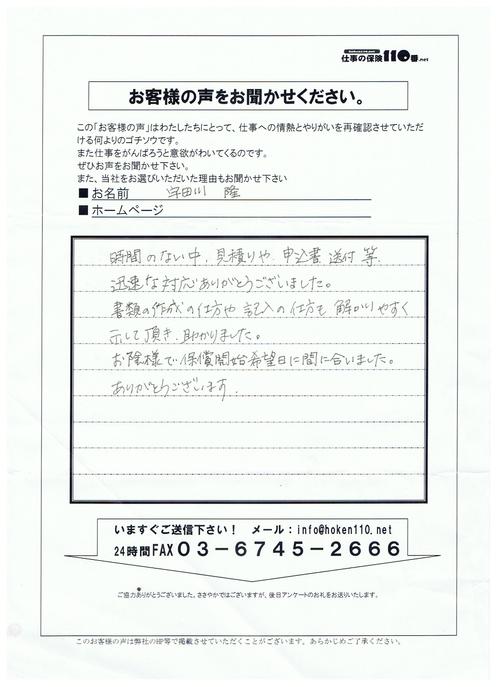 仕事の保険110番.net
お客様の声をお聞かせください。
この「お客様の声」はわたしたちにとって、仕事への情熱とやりがいを再確認させていただ
ける何よりのゴチソウです。
また仕事をがんばろうと意欲がわいてくるのです。
ぜひお声をお聞かせ下さい。
また、当社をお選びいただいた理由もお聞かせ下さい
■お名前 宇田川 隆
■ホームページ
時間のない中、見積りや、申込書送付等、
迅速な対応ありがとうございました。
書類の作成の仕方や記入の仕方も解かりやすく
示して頂き、助かりました。
お陰様で保償開始希望日に間に合いました。
ありがとうございます。
いますぐご送信下さい！ メール：info@hoken110.net
24時間FAX 03-6745-2666
ご協力ありがとうございました。ささやかではございますが、後日アンケートのお礼をお送りいたします。
このお客様の声は弊社のHP等で掲載させていただくことがございます。あらかじめご了承ください。